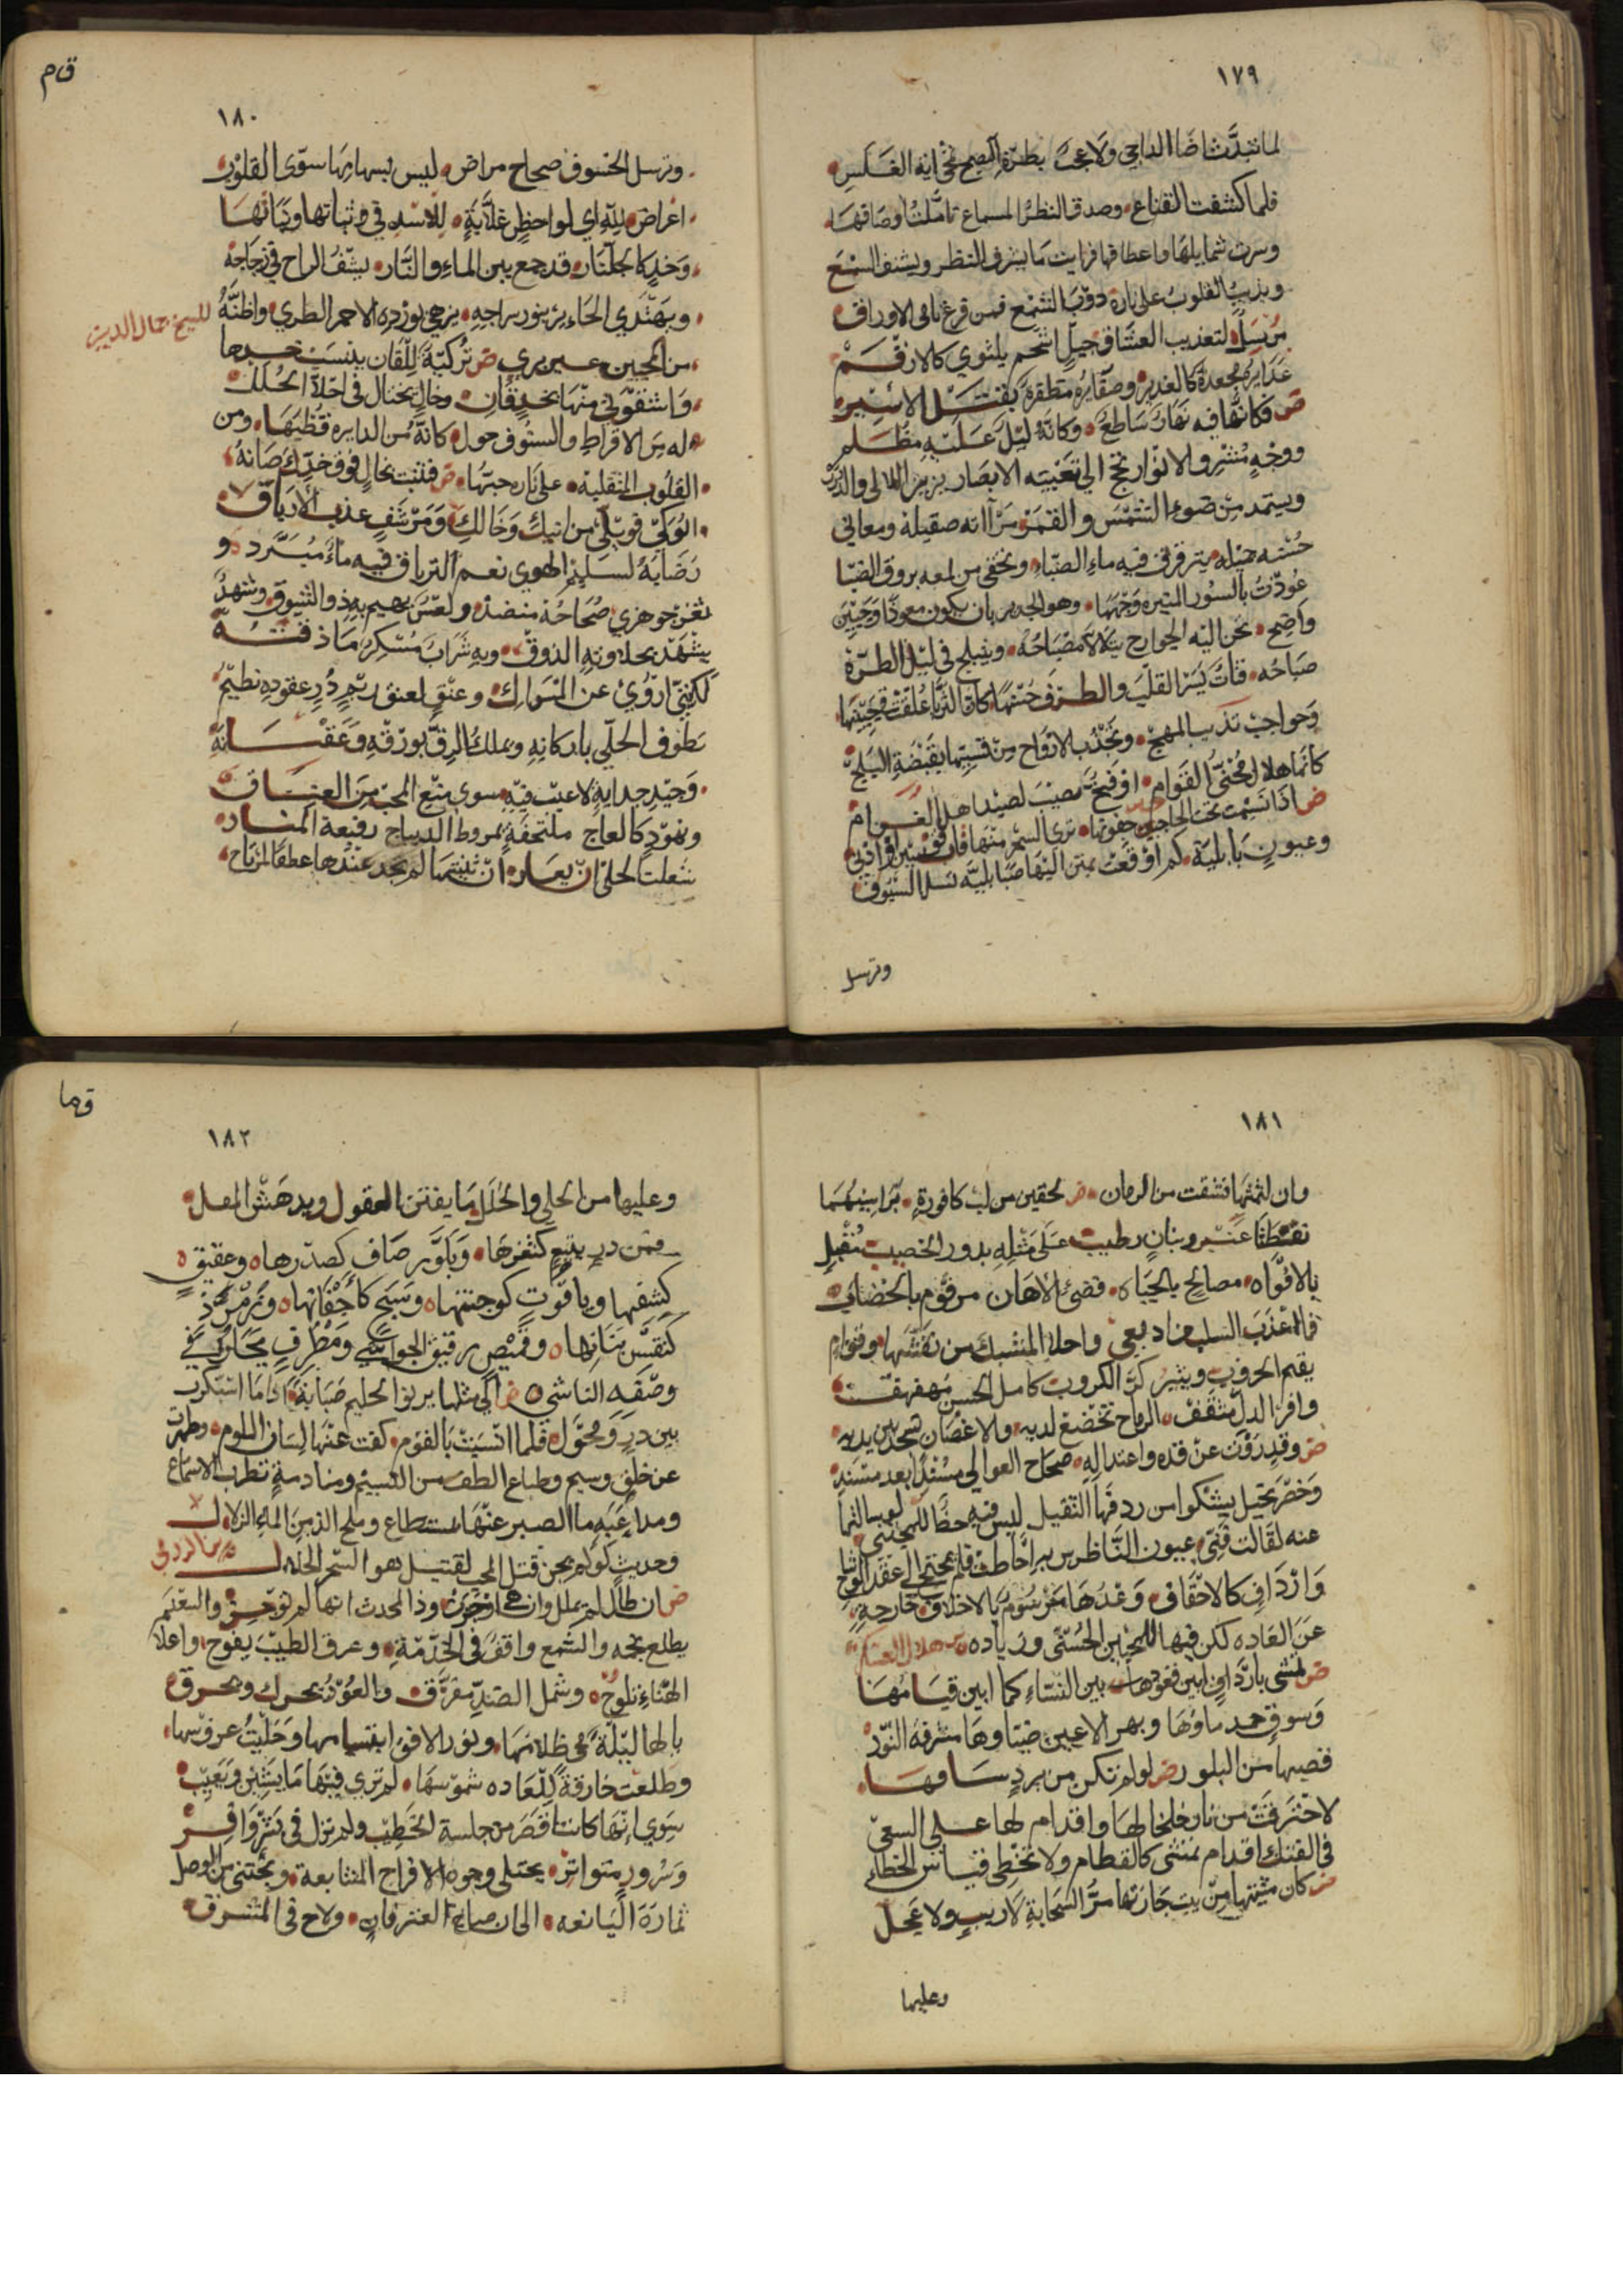 ١٧٩
لما تبدت اضا الداجي ولا عجب بطرة الصبح تخفى اية الغلس
فلما كشفت القناع وصدق النظر السماع تاملت اوصافها
وسرت شمايلها واعطافها فرايت ما يشرف النظر ويشنف السمع
ويذيب القلوب على ناره ذوب الشمع فمن فرع نامى الاوراق
مرسل لتعذيب العشاق اسحم يلتوي كالارقم
غدايره مجعدة كالغدير وضفايره لقتل الاسير
ض فكانها فيه نهار ساطع وكانه ليل عليها مظلم
ووجه مشرق الانوار الابصار
ويستمد من ضوءه الشمس والقمر مرآته صقيلة ومعاني
حسنه يترقرق فيه ماء الصباء وتخفى من لمعه بروق الضيا
عوذت بالسور المنيرة وجهها وهو الجدير بان يكون معوذا وجبين
واضح تحن اليه الجوارح يتلالا مصباحه وينبلج في ليل الطرة
صباحه فتاة يسر القلب والطرف حسنها كان الثريا علقت في جبينها
وحواجب تذيب المهج وتجذب الارواح من قسيها بقبضة البلج
كانما هلال محنى القوام او فخ نصيب لصيد اهل الغرام
ض اذا ابتسمت تحت الحاجبين جفونها ترى السحر منها قاب قوسين او ادنى
وعيون بابلية كم اوقعت بمن اليها صبا بلية تسل السيوف
وترسل
ق م
١٨٠
وترسل الحتوف صحاح مراض ليس لسهامها سوى القلوب
اغراض لله اي لواحظ غلابة للاسد في وثباتها وثباتها
وخد كالجلنار قد جمع بين الماء والنار يشف الراح في زجاجه
ويهتدي بنور سراجه يزهي بورده الاحمر الطري واظنه
للشيخ جمال الدين
من عبير بري ض تركية للقان ينسب خدها
واشقوتي منها بخد قان وخال يختال في احلا الحلل
له من الاقراط والشنوف حول كانه من الدايرة قطبها ومن
القلوب المتقلبة على ناره حبتها ض فتنت بخال فوق خدك صانه
ابوك فويلي من ابيك وخالك ومرشف عذب الارياق
رضابه لسليم الهوى نعم الترياق فيه ماء مبرد و
ثغر جوهري صحاحه منضد ولعس يهيم به ذو الشوق وشهد
يشهد بحلاوته الذوق وبه شراب مسكر ما ذقته
لكنني اروي عن المسواك وعنق لعنق در عقوده نظيم
يطوف الحلي باركانه ويملك الرق بورقه وعقيانه
وجيد جداية لا عيب فيه سوى منع المحب من العناق
ونهود كالعاج ملتحفة بمروط الديباج رفيعة المنار
شغلت الحلى ان يعار ان ثنيتها لم تجد عندها عطفا لمزاح
١٨١
وان لثمتها فشقت من الرمان ض كحقين من لب كافورة برا سيهما
نقطتا عنبر وبنان رطيب على مثله يدور الخصيب تقبل
بالافواه مصالح بالحياه فضى الاهان مرقوم بالخضاب
فما اعذب السلب من اد بعى واحلا المشبك من نقشها وقوام
يقيم الحروب ويثير كر الكروب كامل الحسن مهفهف
وافر الدل مثقف الرماح تخضع لديه والاغصان تسجد بين يديه
ض وقد رويت عن قده واعتداله صحاح العوالي مسندا بعد مسند
وخصر نحيل يشكو من ردفها الثقيل ليس فيه حظ
عنه لقالت فتى عيون الناظرين به احاطت فلم يحتج الى عقد الوشاح
وارداف كالاحقاف وعدها مرسوم بالاخلاف خارجة
عن العادة لكن فيها للمحبين الحسنى وزياده هلال العسكري
ض تمشي بارداف ابين قعودها بين النساء كما ابين قيامها
وسوق جمد ماؤها وبهر الاعين ضياوها مشرفة النور
قضبها من البلور ض لو لم تكن من برد ساقها
لاحترقت من نار خلخالها واقدام لها على السعي
في الفتك اقدام تمشى كالقطام ولا تخطى قياس الخطاء
ض كان مشيتها من بيت جارتها مر السحابة لا ريب ولا عجل
وعليها
ق ما
١٨٢
وعليها من الحلي والحلل ما يفتن العقول ويدهش المقل
فمن در يتيم كثغرها وبلور صاف كصدرها وعقيق
كشفهتا وياقوت كوجنتها وسبج كاجفانها وزمرد
كنقش بنانها وقميص رقيق الحواشي ومطرف يحار في
وصفه الناشي ض الى مثلها يرنو الحليم صبابة اذا ما اسبكرت
بين درع ومجول فلما انست بالقوم كفت عنها لسان اللوم وظهرت
عن خلق وسيم وطباع الطف من النسيم ومنادمة تطرب الاسماع
ومداعبة ما الصبر عنها مستطاع وملح الذ من الماء الزلال
وحديث كولم يجن قتل المحب لقتيل هو السحر الحلال ابن الرومي
ض ان طال لم يملل وان هي اوجزت ود المحدث انها لم توجز والنغم
يطلع نجمه والشمع واقف في الخدمة وعرف الطيب يفوح واعلام
الهناء تلوح وشمل الضد مفرق والعود يحرك ويحرق
يا لها ليلة محى ظلامها ونور الافق ابتسامها وجليت عروسها
وطلعت خارقة للعادة شموسها لم ترى فيها ما يشين ويعيب
سوى انها كانت اقصر من جلسة الخطيب ولم نزل في بشر وافر
وسرور متواتر يجتلى وجوه الافراح المتتابعة ويجتنى من الوصل
ثماره اليانعه الى ان صاح العترفان ولاح في المشرق